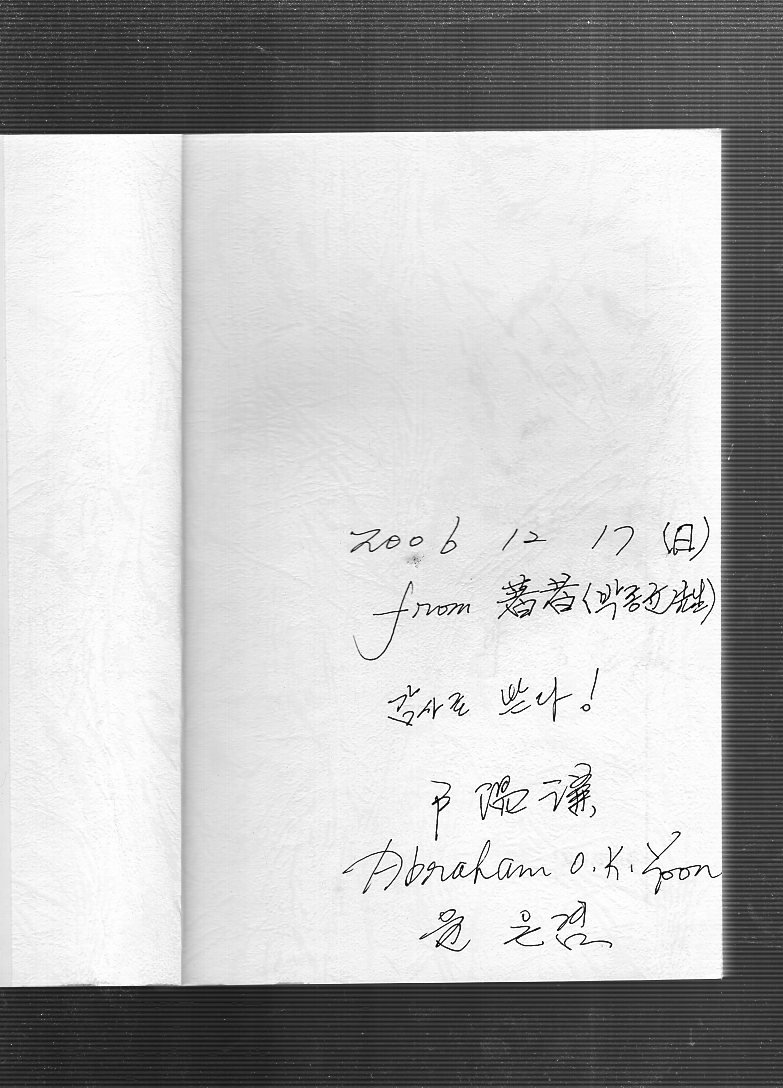 2006 12 17 (日)
from 著者 (박종
감사로 받다!
尹 謙
Abraham O.K. Yoon
윤 은겸